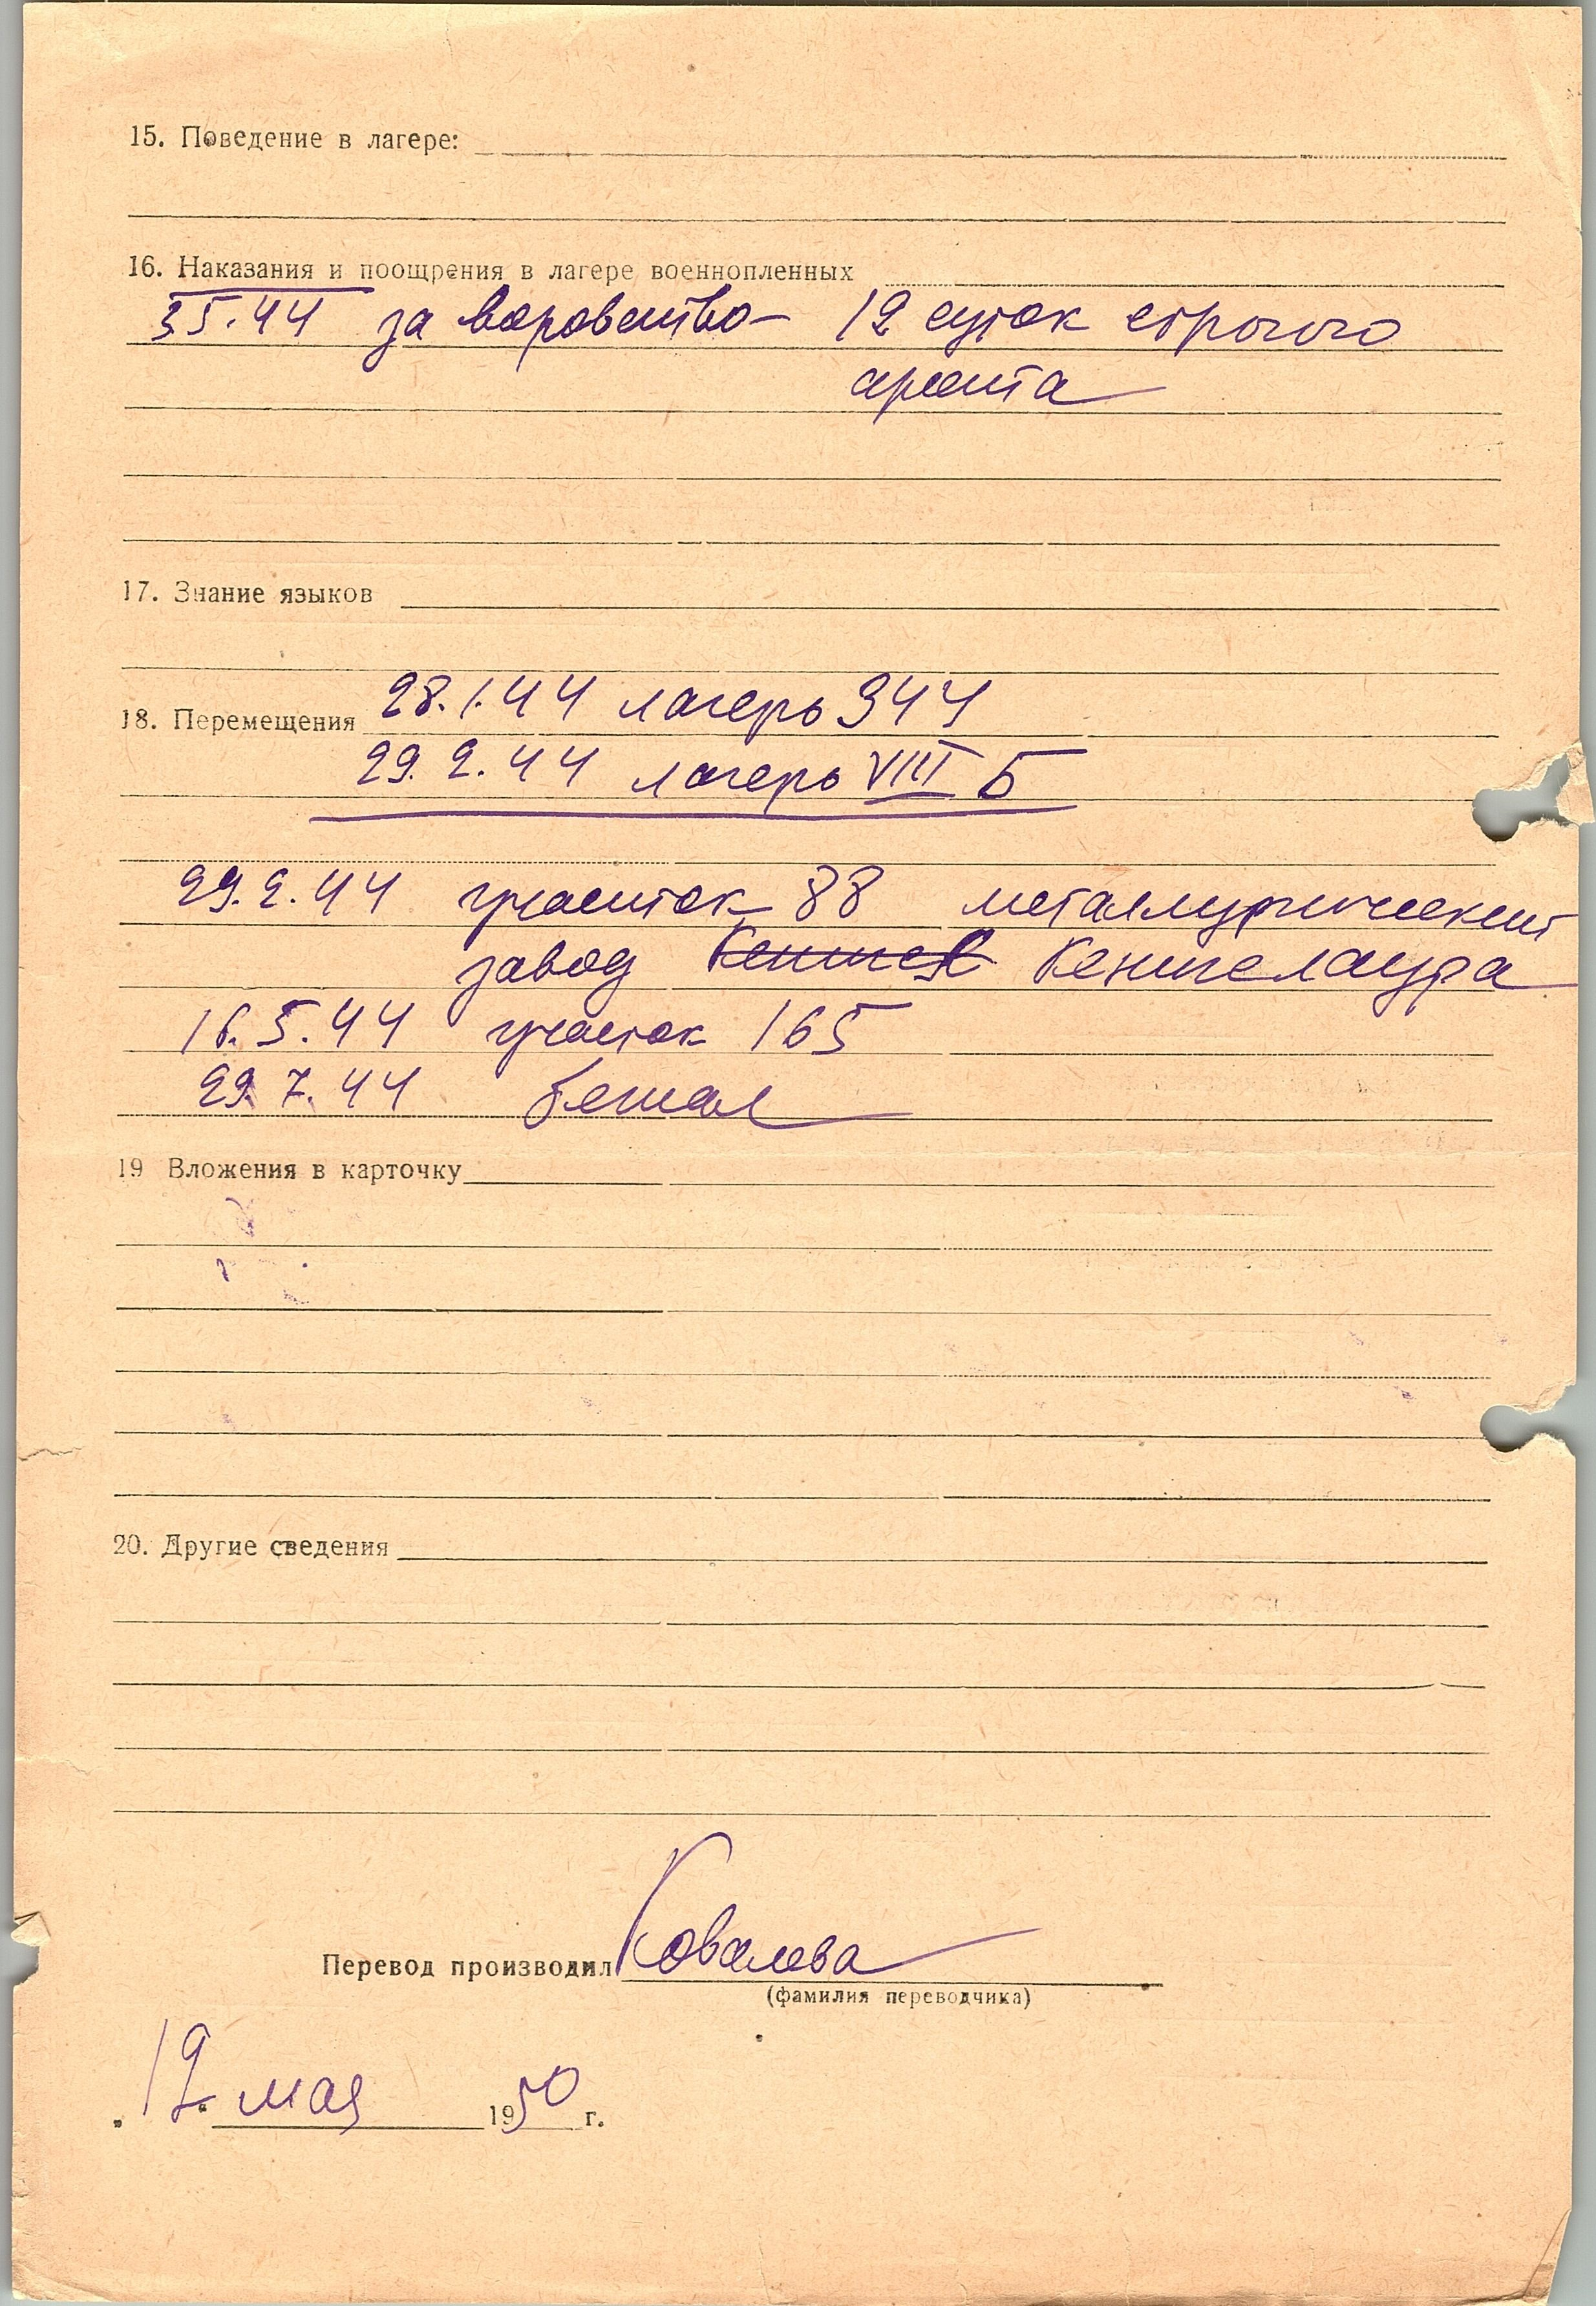 15. Поведение в лагере:
16. Наказания и поощрения в лагере военнопленных
3 5.44 за воровство – 12 суток строгого
ареста
17. Знание языков
18. Перемещения 28.1.44 лагерь 344
29.2.44 лагерь VIII Б
29.2.44 участок 88 металлургический
завод Кенигслаура
16.5.44 участок 165
29.7.44 бежал
19 Вложения в карточку
20. Другие сведения
Перевод производил Ковалева
(фамилия переводчика)
12 мая 1950 г.